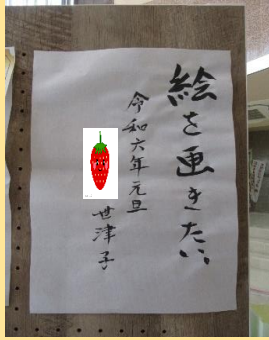 絵を画きたい
令和六年元旦
世津子